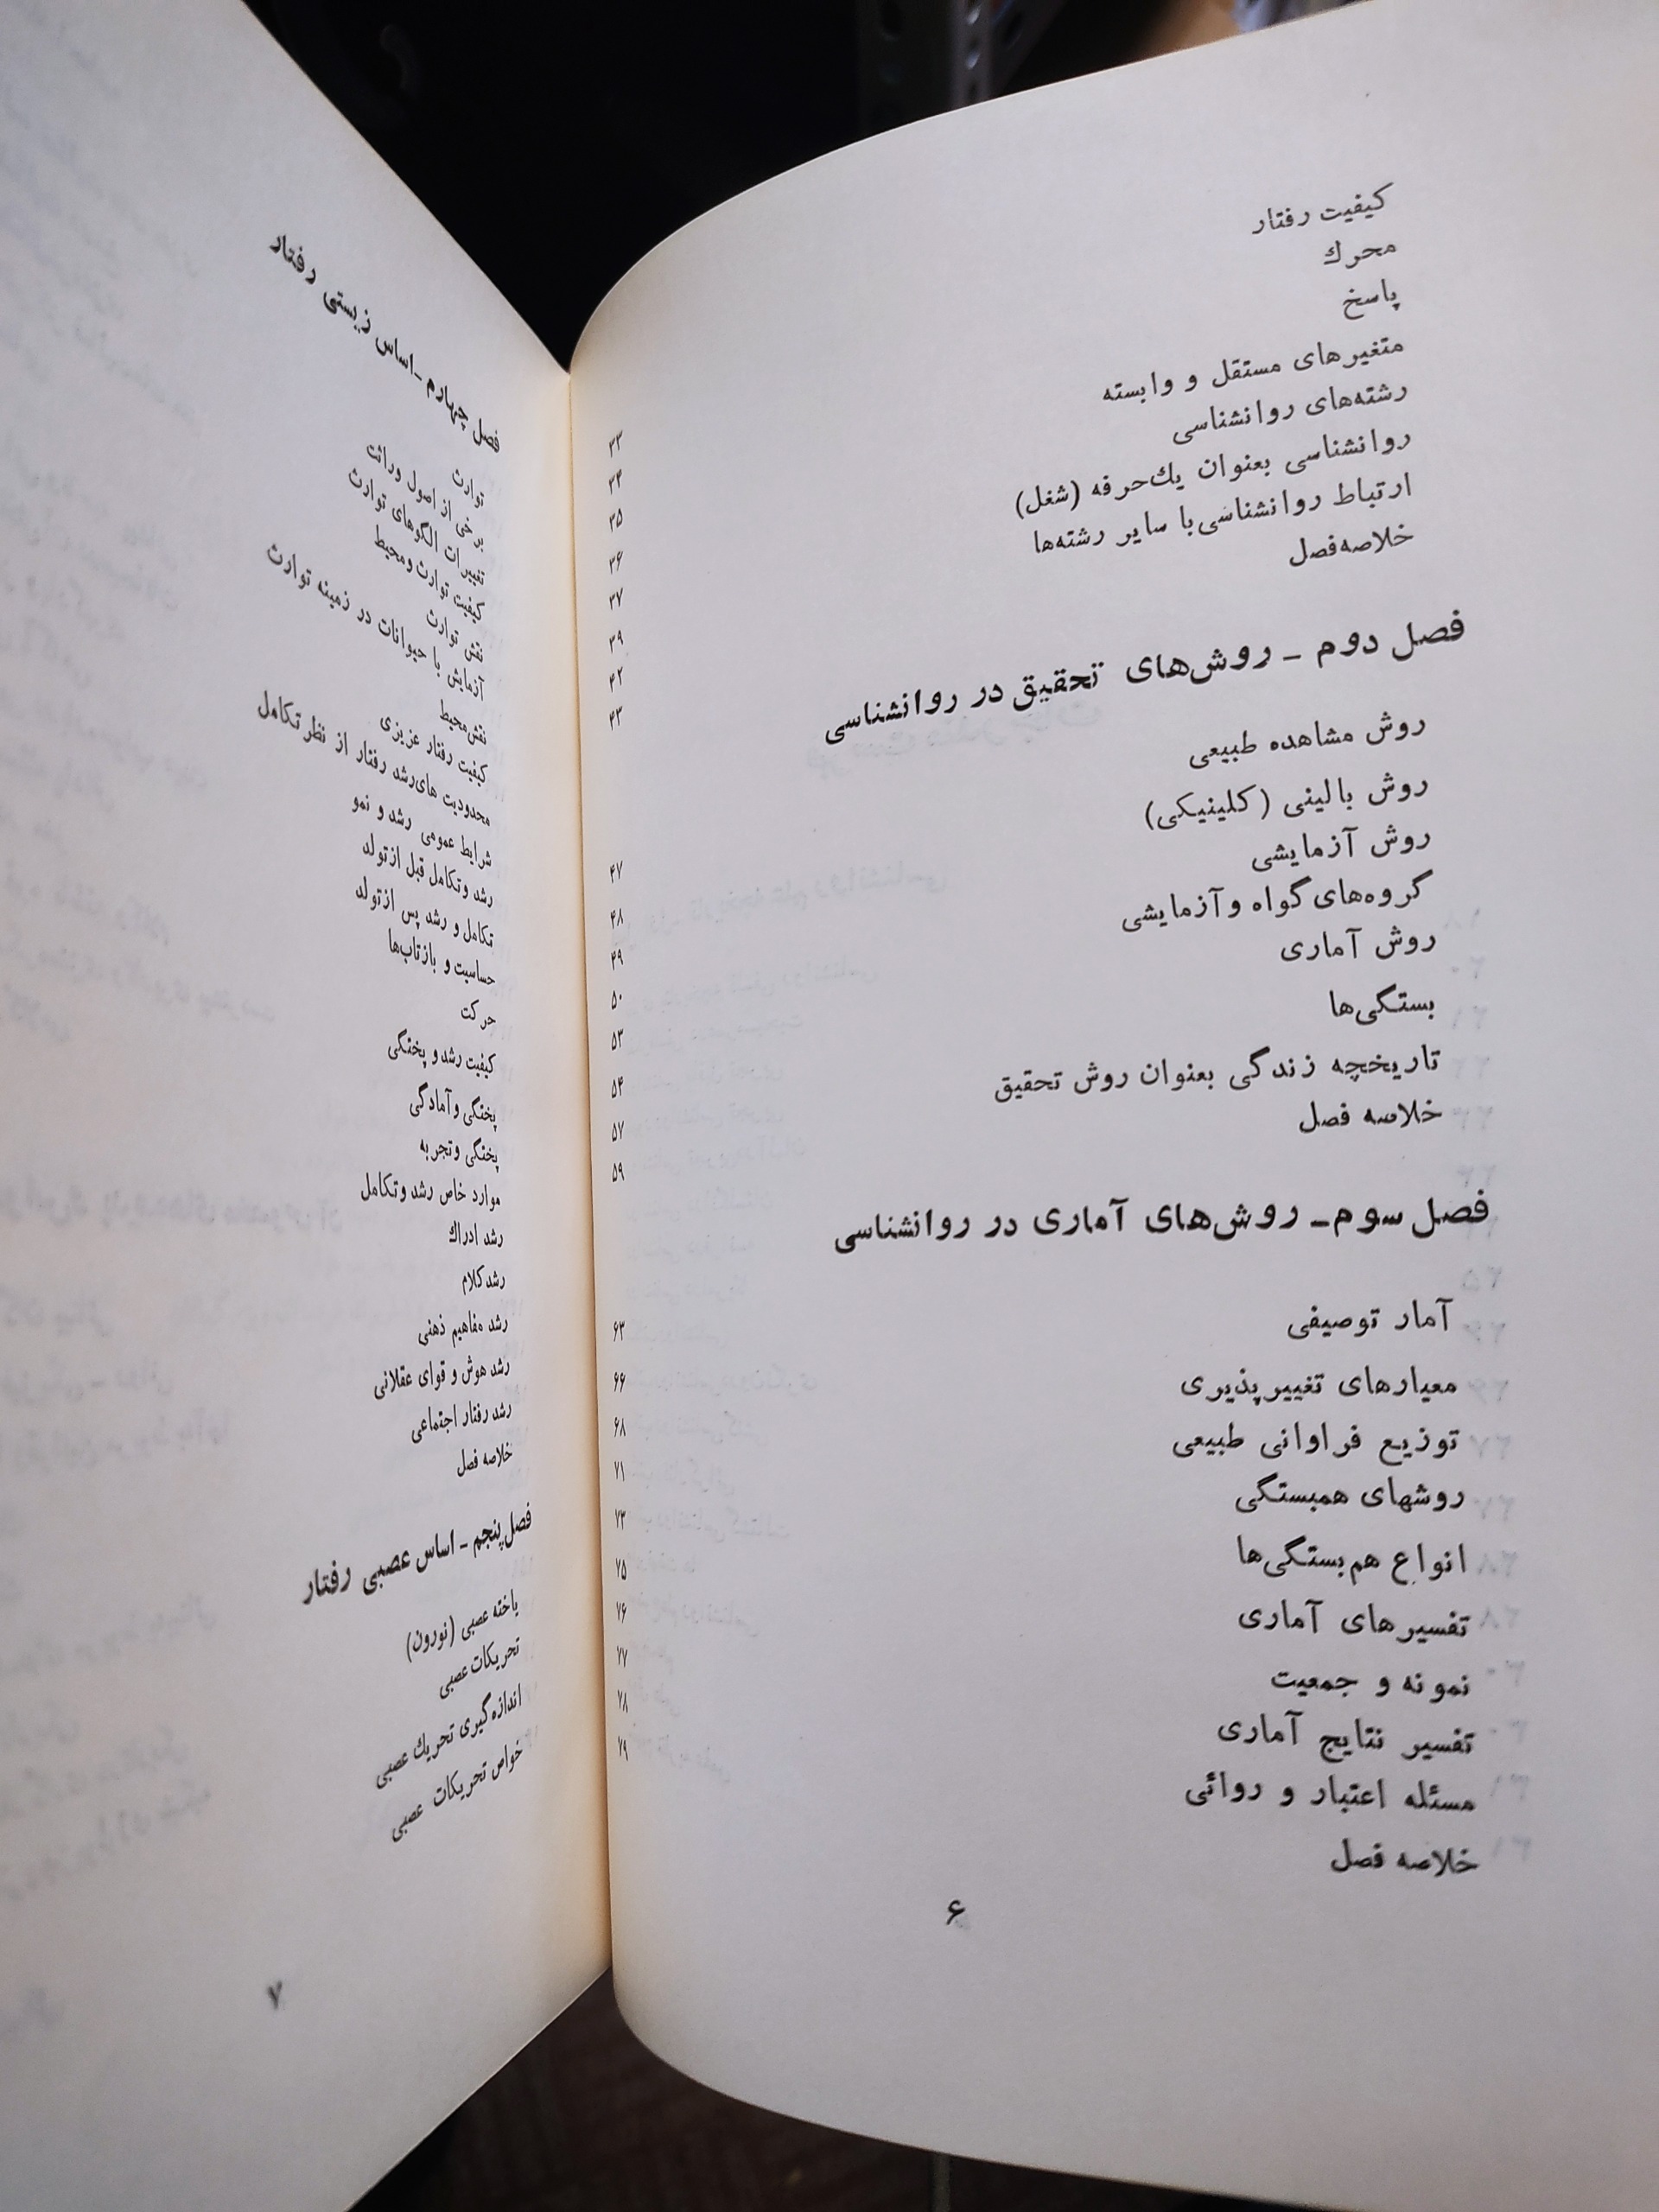 کیفیت رفتار ۳۳
محرك ۳۴
پاسخ ۳۵
متغیرهای مستقل و وابسته ۳۶
رشته‌های روانشناسی ۳۷
روانشناسی بعنوان یك‌حرفه (شغل) ۳۹
ارتباط روانشناسی با سایر رشته‌ها ۴۲
خلاصه‌فصل ۴۳
فصل دوم ـ روش‌های تحقیق در روانشناسی
روش مشاهده طبیعی ۴۷
روش بالینی (کلینیکی) ۴۸
روش آزمایشی ۴۹
گروه‌های گواه و آزمایشی ۵۰
روش آماری ۵۳
بستگی‌ها ۵۴
تاریخچه زندگی بعنوان روش تحقیق ۵۷
خلاصه فصل ۵۹
فصل سوم ـ روش‌های آماری در روانشناسی
آمار توصیفی ۶۳
معیارهای تغییرپذیری ۶۶
توزیع فراوانی طبیعی ۶۸
روشهای همبستگی ۷۱
انواع هم‌بستگی‌ها ۷۳
تفسیرهای آماری ۷۵
نمونه و جمعیت ۷۶
تفسیر نتایج آماری ۷۷
مسئله اعتبار و روائی ۷۸
خلاصه فصل ۷۹
۶
فصل چهارم ـ اساس زیستی رفتار
توارث
برخی از اصول وراثت
تغییرات الگوهای توارث
کیفیت توارث و محیط
نقش توارث
آزمایش با حیوانات در زمینه توارث
نقش محیط
کیفیت رفتار غریزی
محدودیت های رشد رفتار از نظر تکامل
شرایط عمومی رشد و نمو
رشد و تکامل قبل از تولد
تکامل و رشد پس از تولد
حساسیت و بازتاب‌ها
حرکت
کیفیت رشد و پختگی
پختگی و آمادگی
پختگی و تجربه
موارد خاص رشد و تکامل
رشد ادراك
رشد کلام
رشد مفاهیم ذهنی
رشد هوش و قوای عقلانی
رشد رفتار اجتماعی
خلاصه فصل
فصل پنجم ـ اساس عصبی رفتار
یاخته عصبی (نورون)
تحریکات عصبی
اندازه گیری تحریك عصبی
خواص تحریکات عصبی
۷